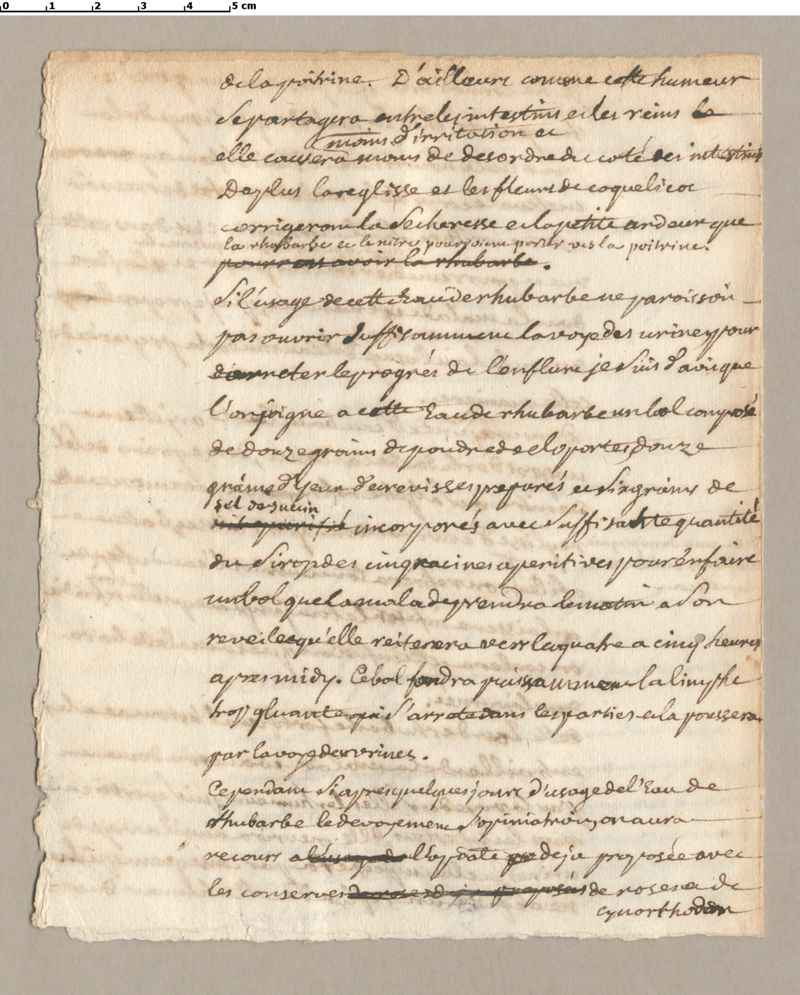 0 1 2 3 4 5 cm
de la poitrine. D'ailleurs comme cette humeur
se partagera entre les intestins et les reins
moins d'irritation et
elle causera moins de desordre du coté des intestins
De plus la reglisse et les fleurs de coquelicot
corrigeront la secheresse et la petite ardeur que
la rhubarbe et le nitre pourroient porter vers la poitrine.
pourront avoir la rhubarbe.
Si l'usage de cette Eau de rhubarbe ne paroissoit
pas ouvrir suffisamment la voye des urines pour
arreter le progrés de l'enflure je suis d'avis que
l'on joigne a cette Eau de rhubarbe un bol composé
de douze grains de poudre de cloportes, douze
grains d'yeux d'ecrevisses preparés et six grains de
sel de succin
incorporés avec suffisante quantité
du sirop des cinq racines aperitives pour en faire
un bol que la malade prendra le matin a son
reveil et qu'elle reiterera vers les quatre a cinq heures
apres midy. Ce bol fondra puissamment la limphe
trop gluante qui s'arrete dans les parties et la poussera
par la voye des urines.
Cependant si apres quelques jours d'usage de l'Eau de
rhubarbe le devoyement s'opiniatroit, on aura
recours a l'usage de l'opiate deja proposée avec
les conserves de roses deja proposés de roses et de
cynorrhodon